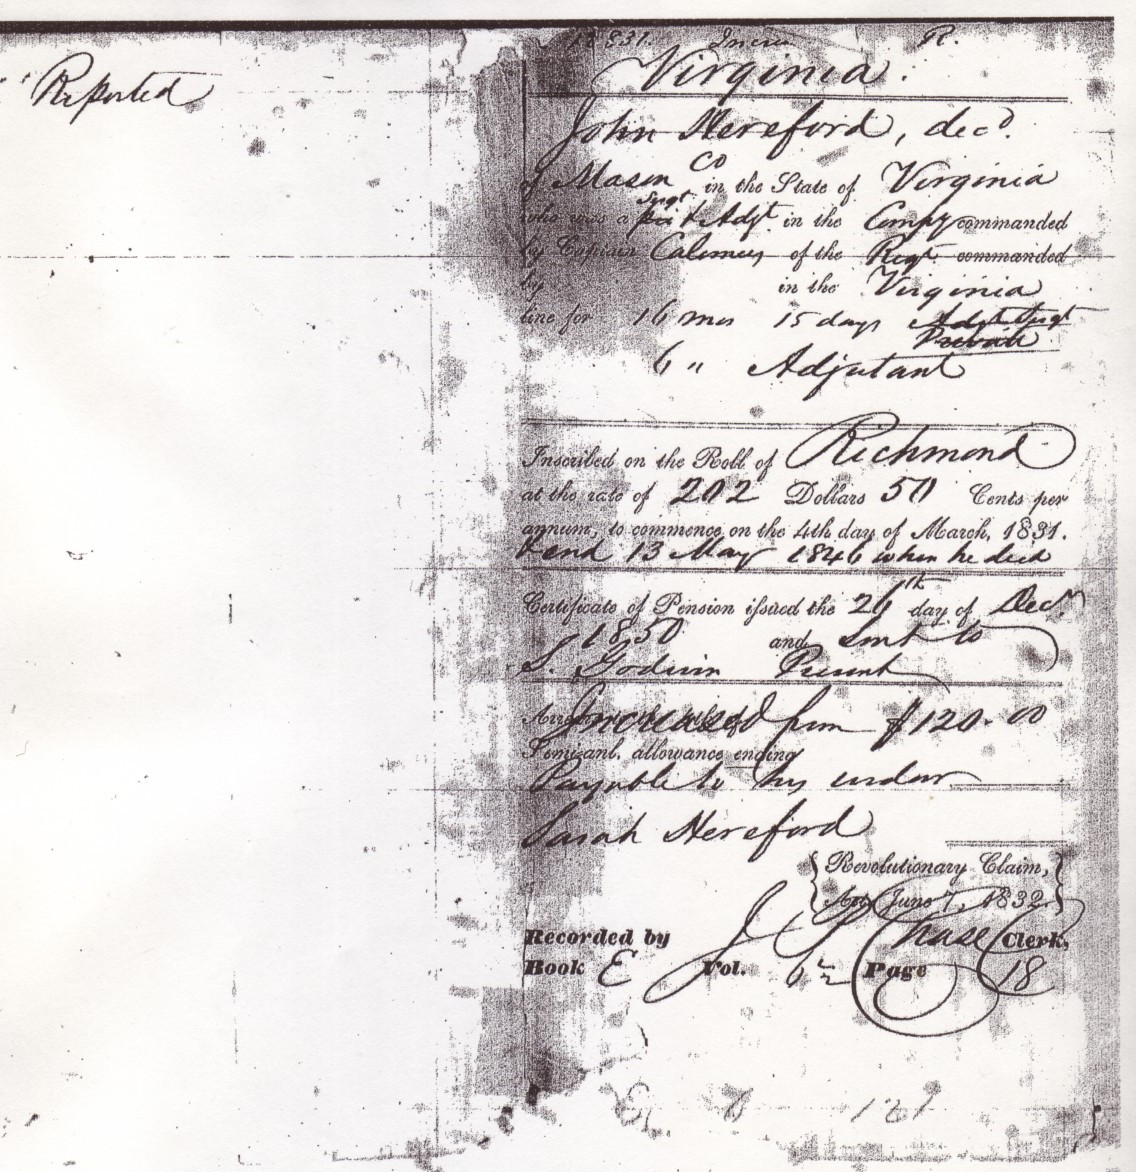 Reported
Virginia.
John Hereford, decd.
of Mason Co in the State of Virginia
Sergt
who was a & Adjt in the Compy commanded
by Captain of the Regt commanded
by in the Virginia
line for 16 mos 15 days Adjt Sergt
Private
6 " Adjutant
Inscribed on the Roll of Richmond
at the rate of 202 Dollars 50 Cents per
annum, to commence on the 4th day of March, 1831.
& end 13 May 1846 when he died
Certificate of Pension issued the 26th day of Decr.
1850 and Sent to
S. Godwin Present
Increased from $120.00
Semi-anl. allowance ending
Payable to his widow
Sarah Hereford
Revolutionary Claim,
Act June 7, 1832.
Recorded by J Chase Clerk,
Book E Vol. 6½ Page 18